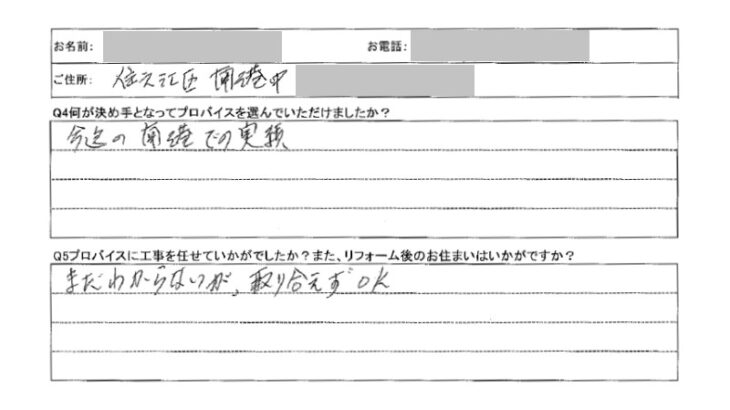 お名前: お電話:
ご住所: 住之江区 南港中
Q4何が決め手となってプロバイスを選んでいただけましたか?
今迄の南港での実績
Q5プロバイスに工事を任せていかがでしたか?また、リフォーム後のお住まいはいかがですか?
まだわからないが、取り合えずOK